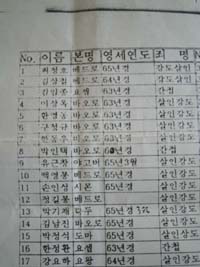 No. 이름 본명 영세연도 죄 명
1 최정호 베드로 65년경 강도살인
2 김상철 베드로 63년경 살인강도
3 김임종 요셉 63년경 간첩
4 이상옥 바오로 63년경 살인강도
5 한경동 바오로 63년경 살인강도
6 구철규 바오로 63년경 살인강도
7 바오로 63년경 살인강도
8 박인택 바오로 년경 간첩
9 유근창 야고버 65년3월 살인강도
10 백영봉 베드로 살인강도
11 손인성 시몬 65년경 살인강도
12 정길봉 베드로
13 박기재 65년경 살인강도
14 김남진 바오로 65년경 살인강도
15 박청석 도마 65년경 살인강도
16 한청환 요셉 63년경 간첩
17 강요하 요왕 64년경 살인강도